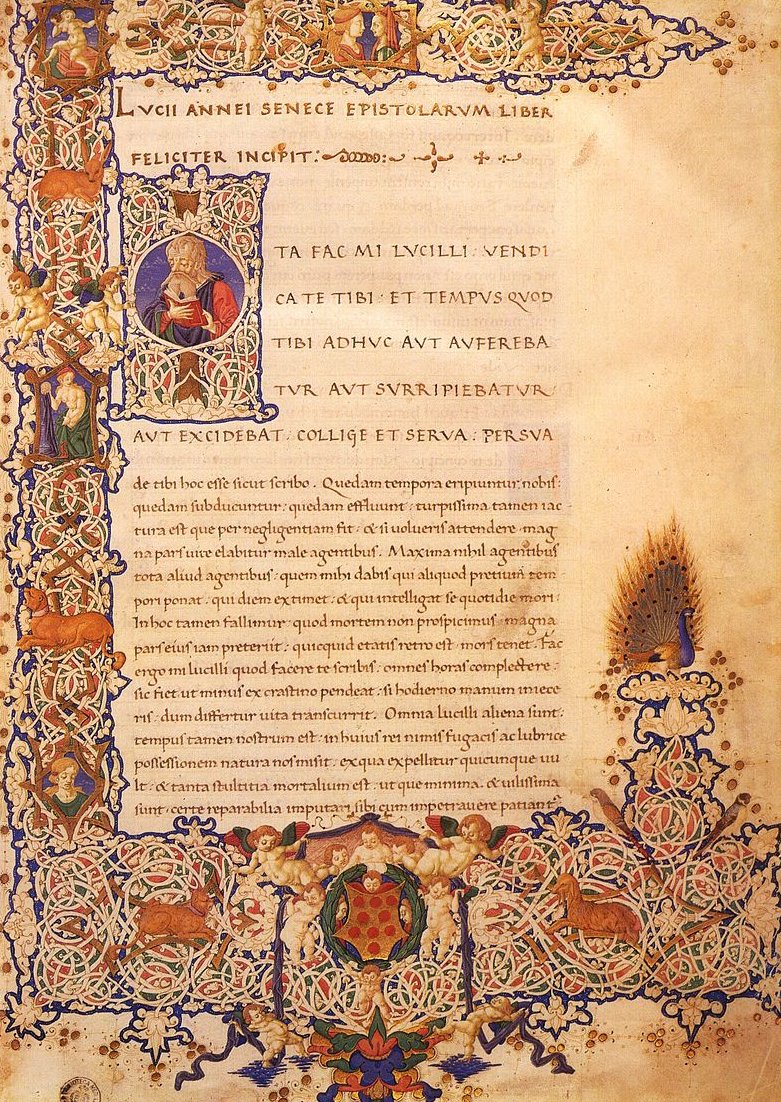 LVCII ANNEI SENECE EPISTOLARVM LIBER
FELICITER INCIPIT:
ITA FAC MI LVCILLI: VENDI
CA TE TIBI: ET TEMPVS QVOD
TIBI ADHVC AVT AVFEREBA
TVR AVT SVRRIPIEBATVR:
AVT EXCIDEBAT: COLLIGE ET SERVA: PERSVA
de tibi hoc esse sicut scribo. Quedam tempora eripiuntur nobis:
quedam subducuntur: quedam effluunt: turpissima tamen iac
tura est que per negligentiam fit: & si volueris attendere: mag
na pars uite elabitur male agentibus. Maxima nihil agentibus
tota aliud agentibus: quem mihi dabis qui aliquod pretiũ tem
pori ponat: qui diem extimet: & qui intelligat se quotidie mori:
In hoc tamen fallimur: quod mortem non prospicimus: magna
pars eius iam preteriit: quicquid etatis retro est: mors tenet. Fac
ergo mi lucilli quod facere te scribis: omnes horas complectere:
sic fiet ut minus ex crastino pendeat: si hodierno manum iniece
ris: dum differtur uita transcurrit. Omnia lucilli aliena sunt:
tempus tamen nostrum est: in huius rei nimis fugacis ac lubrice
possessionem natura nos misit: ex qua expellitur quicunque uu
lt: & tanta stultitia mortalium est: ut que minima: & uilissima
sunt: certe reparabilia imputari sibi cum impetrauere patiantᵘʳ